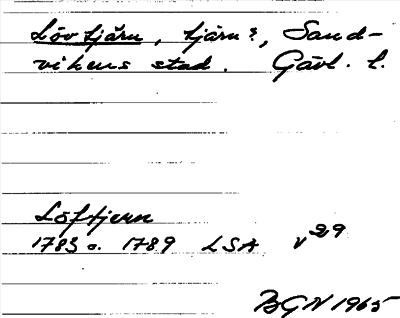 Lövtjärn, tjärn?, Sand-
vikens stad. Gävl. l.
Löftjern
1783 o. 1789 LSA v 29
BGN 1965